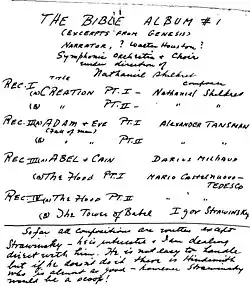 THE BIBLE ALBUM #1
(EXCERPTS FROM GENESIS)
NARRATOR, ? Walter Houston?
Symphonic Orchestra & Choir
under direction of
Nathaniel Shilkret
TITLE composer
REC. I (A) CREATION PT. I - Nathaniel Shilkret
(B) " PT. II - " "
REC. II (A) ADAM & EVE PT I ALEXANDER TANSMAN
(Fall of man)
(B) " PT II " "
REC III (A) ABEL & CAIN DARIUS MILHAUD
(B) THE FLOOD PT I MARIO CASTELNUOVO-
TEDESCO
REC IV (A) THE FLOOD PT II " "
(B) The Tower of Babel Igor Strawinsky
So far all compositions are written except
Strawinsky - he is interested & I am dealing
direct with him. He is not easy to handle
but if he doesn't do it there is Hindemith
who is almost as good - however Strawinsky
would be a scoop!